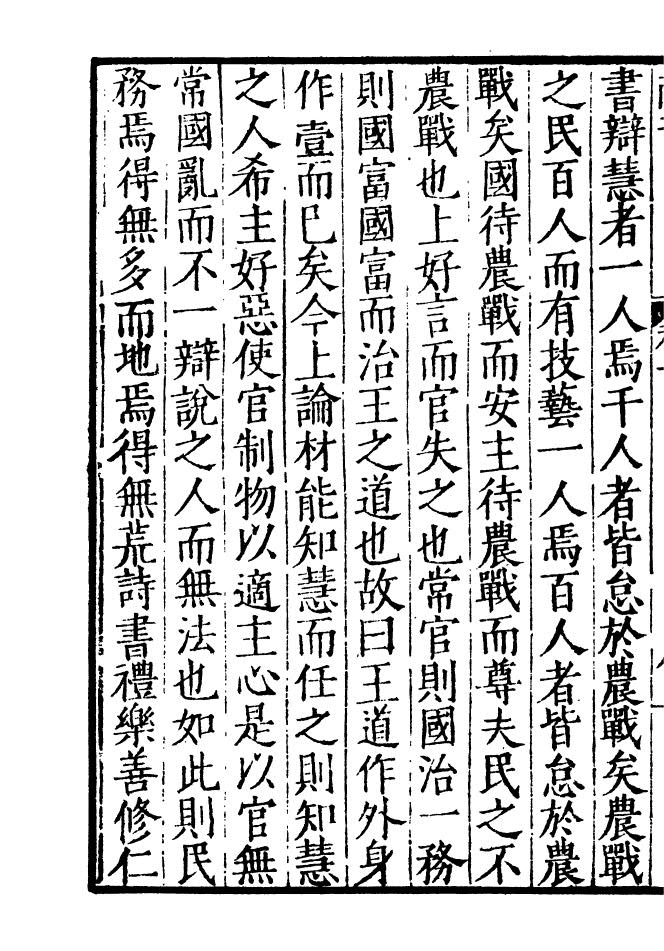 書辯慧者一人焉千人者皆怠於農戰矣農戰
之民百人而有技藝一人焉百人者皆怠於農
戰矣國待農戰而安主待農戰而尊夫民之不
農戰也上好言而官失之也常官則國治一務
則國富國富而治王之道也故曰王道作外身
作壹而已矣今上論材能知慧而任之則知慧
之人希主好惡使官制物以適主心是以官無
常國亂而不一辯說之人而無法也如此則民
務焉得無多而地焉得無荒詩書禮樂善修仁